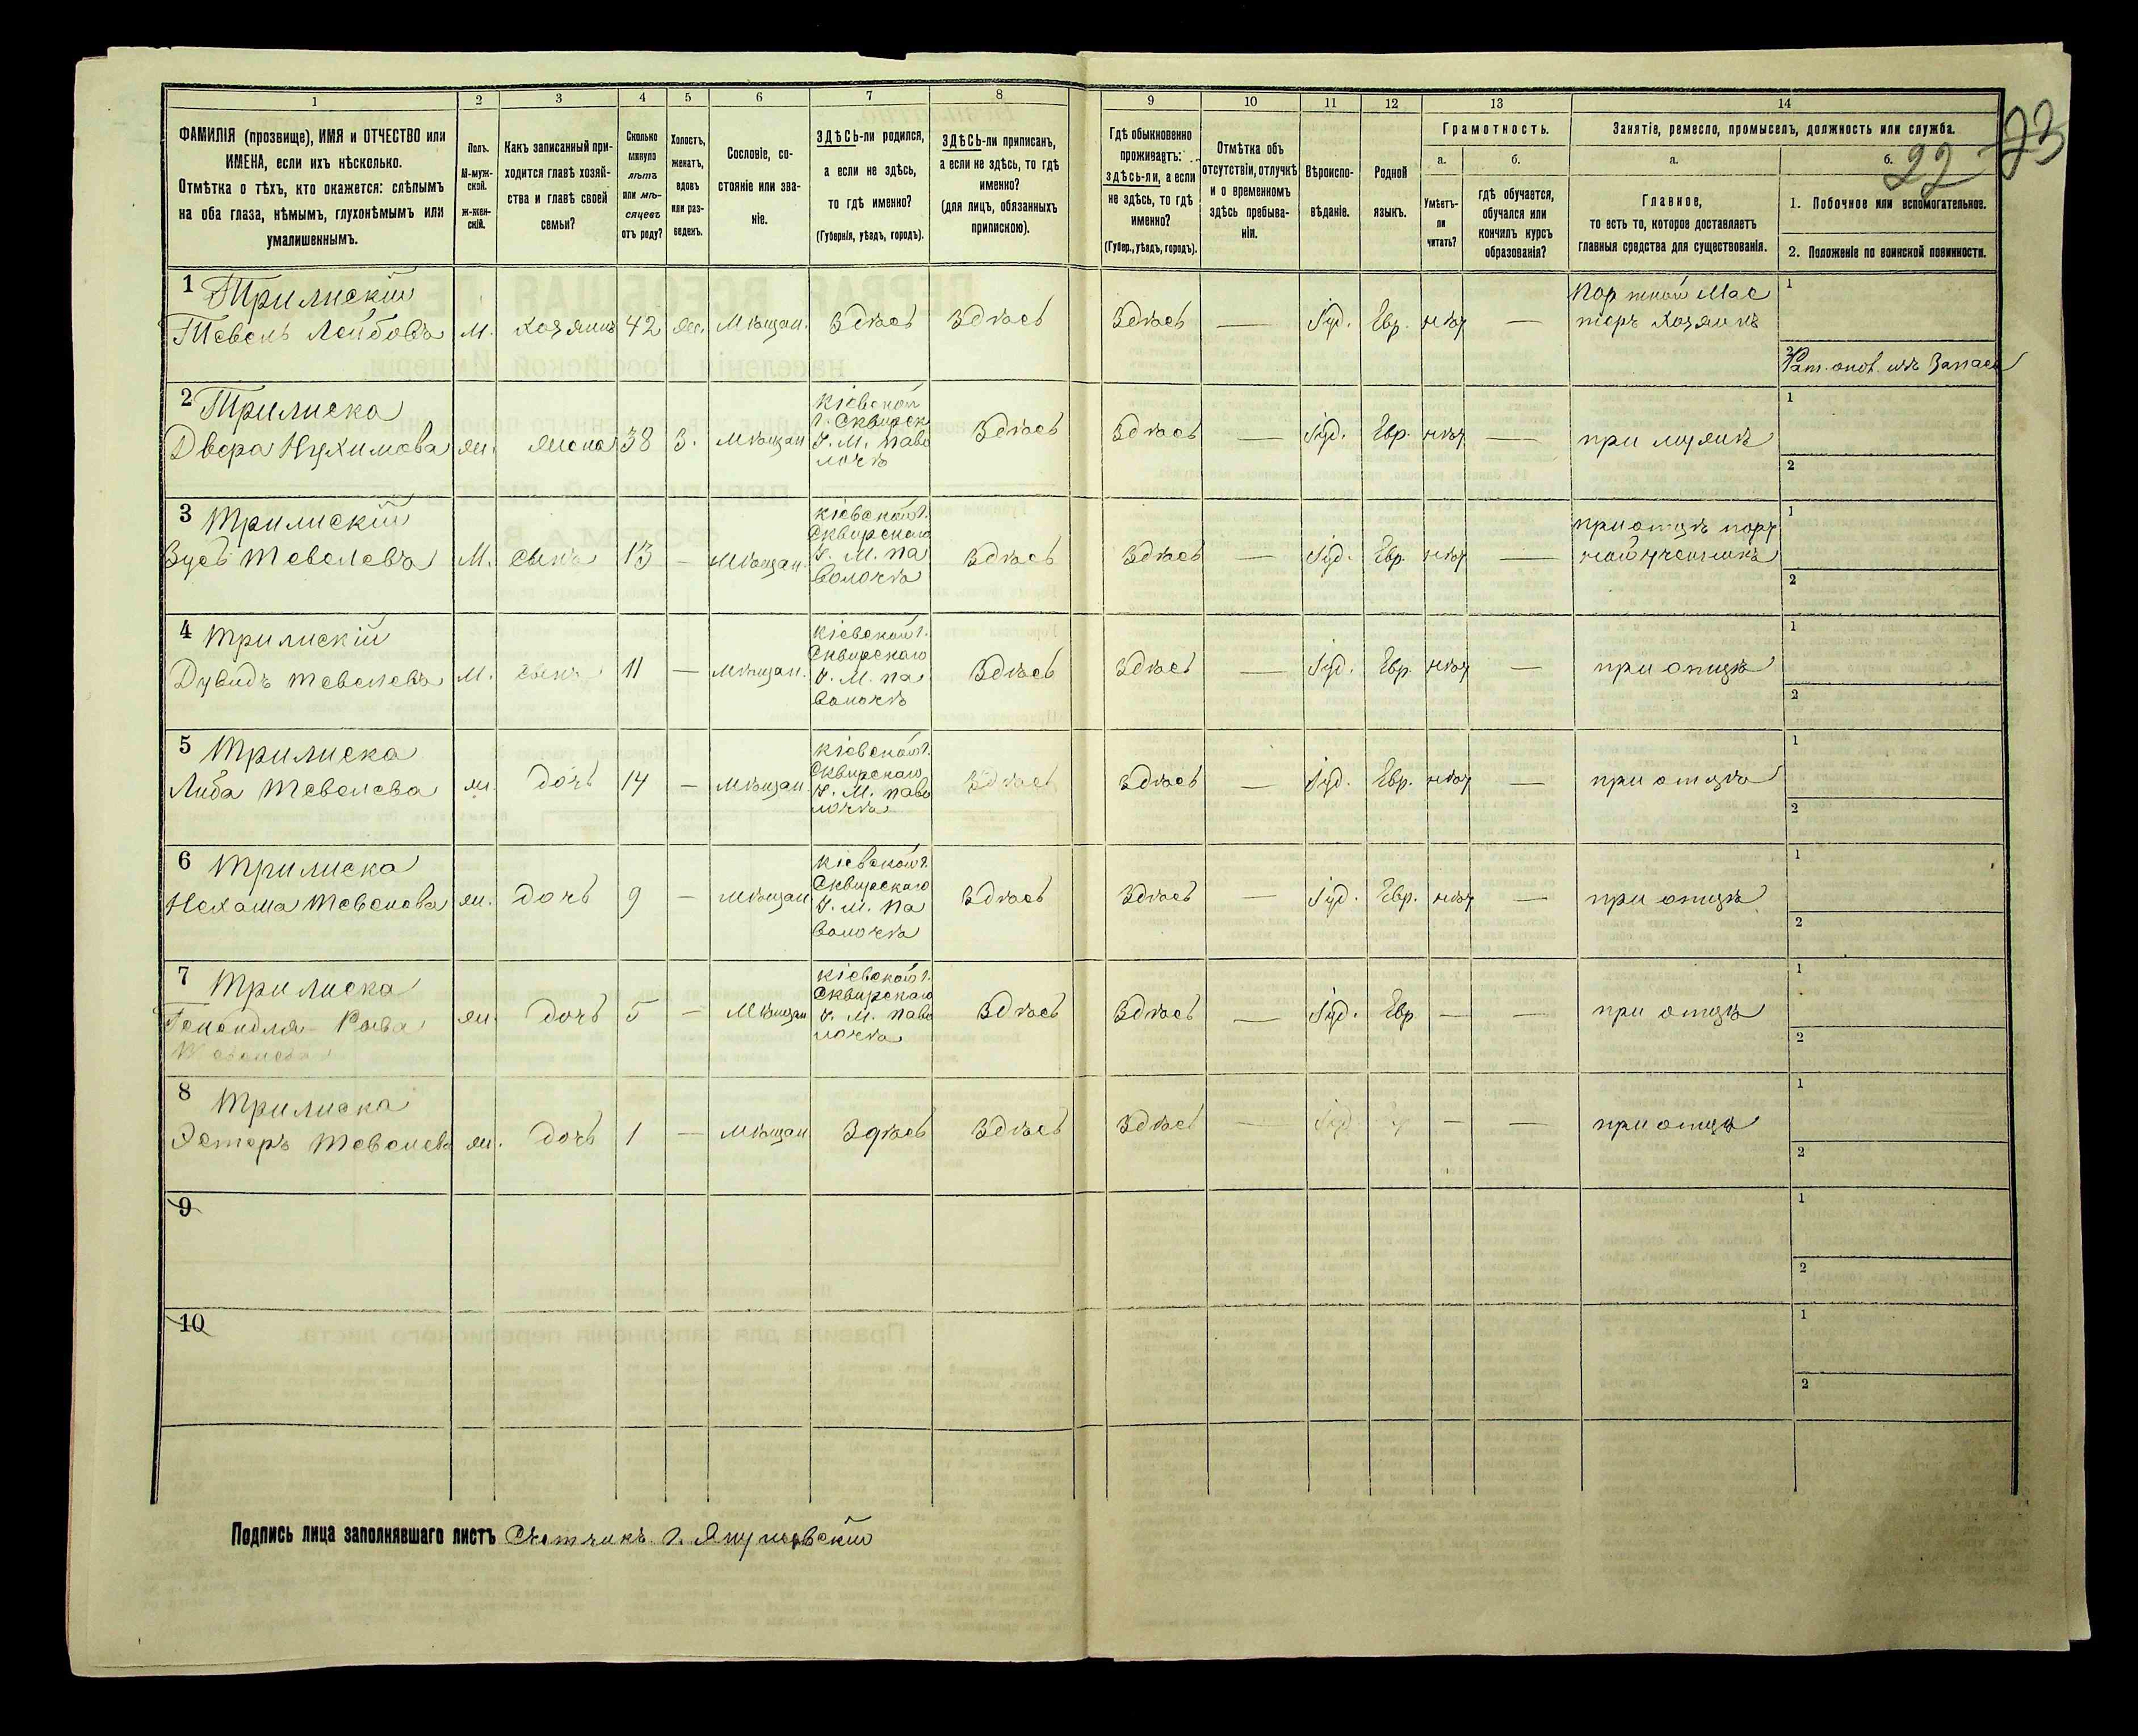 1
2
3
4
5
6
7
8
ФАМИЛІЯ (прозвище), ИМЯ и ОТЧЕСТВО или
ИМЕНА, если ихъ нѣсколько.
Отмѣтка о тѣхъ, кто окажется: слѣпымъ
на оба глаза, нѣмымъ, глухонѣмымъ или
умалишеннымъ.
Полъ.
М-муж-
ской.
ж-жен-
скій.
Какъ записанный при-
ходится главѣ хозяй-
ства и главѣ своей
семьи?
Сколько
минуло
лѣтъ
или мѣ-
сяцевъ
отъ роду?
Холостъ,
женатъ,
вдовъ
или раз-
веденъ.
Сословіе, со-
стояніе или зва-
ніе.
ЗДѢСЬ-ли родился,
а если не здѣсь,
то гдѣ именно?
(Губернія, уѣздъ, городъ).
ЗДѢСЬ-ли приписанъ,
а если не здѣсь, то гдѣ
именно?
(для лицъ, обязанныхъ
припискою).
9
10
11
12
13
14
Гдѣ обыкновенно
проживаетъ:
здѣсь-ли, а если
не здѣсь, то гдѣ
именно?
(Губер., уѣздъ, городъ).
Отмѣтка объ
отсутствіи, отлучкѣ
и о временномъ
здѣсь пребыва-
ніи.
Вѣроиспо-
вѣданіе.
Родной
языкъ.
Грамотность.
а.
б.
Умѣетъ-
ли
читать?
гдѣ обучается,
обучался или
кончилъ курсъ
образованія?
Занятіе, ремесло, промыселъ, должность или служба.
а.
б.
Главное,
то есть то, которое доставляетъ
главныя средства для существованія.
1. Побочное или вспомогательное.
2. Положеніе по воинской повинности.
22
73
1 Трилискій
Тевель Лейбовъ м. хозяинъ 42 жен. Мѣщан. Здѣсь Здѣсь Здѣсь — Іуд. Евр. нѣт —
Портной Мас
теръ хозяинъ
1
2
из Запаса
2 Трилиска
Двера Нухимова жн. жена 38 З. мѣщан
Кіевской
г. Сквирск
у. М. Паво
лочѣ
Здѣсь Здѣсь — Іуд. Евр. нѣт — при мужѣ
1
2
3 Трилискій
Зусь Тевелевъ М. сынъ 13 — Мѣщан.
Кіевской г.
Сквирскаго
у. М. Па
волочѣ
Здѣсь Здѣсь — Іуд. Евр. нѣт —
при отцѣ порт
ной ученикъ
1
2
4 Трилискій
Дувидъ Тевелевъ М. сынъ 11 — мѣщан.
Кіевской г.
Сквирскаго
у. М. Па
волочѣ
Здѣсь Здѣсь — Іуд. Евр. нѣт — при отцѣ
1
2
5 Трилиска
Либа Тевелева жн. дочь 14 — мѣщан.
Кіевской г.
Сквирскаго
у. М. Паво
лочѣ
Здѣсь Здѣсь — Іуд. Евр. нѣт — при отцѣ
1
2
6 Трилиска
Нехама Тевелева жн. дочь 9 — мѣщан
Кіевской г.
Сквирскаго
у. М. Па
волочѣ
Здѣсь Здѣсь — Іуд. Евр. нѣт — при отцѣ
1
2
7 Трилиска
Генендля Рыва
Тевелева
жн. дочь 5 — мѣщан
Кіевской г.
Сквирскаго
у. М. Паво
лочѣ
Здѣсь Здѣсь — Іуд. Евр — — при отцѣ
1
2
8 Трилиска
Эстеръ Тевелева жн. дочь 1 — мѣщан Здѣсь Здѣсь Здѣсь — Іуд — — при отцѣ
1
2
9
1
2
10
1
2
Подпись лица заполнявшаго листъ Счетчикъ